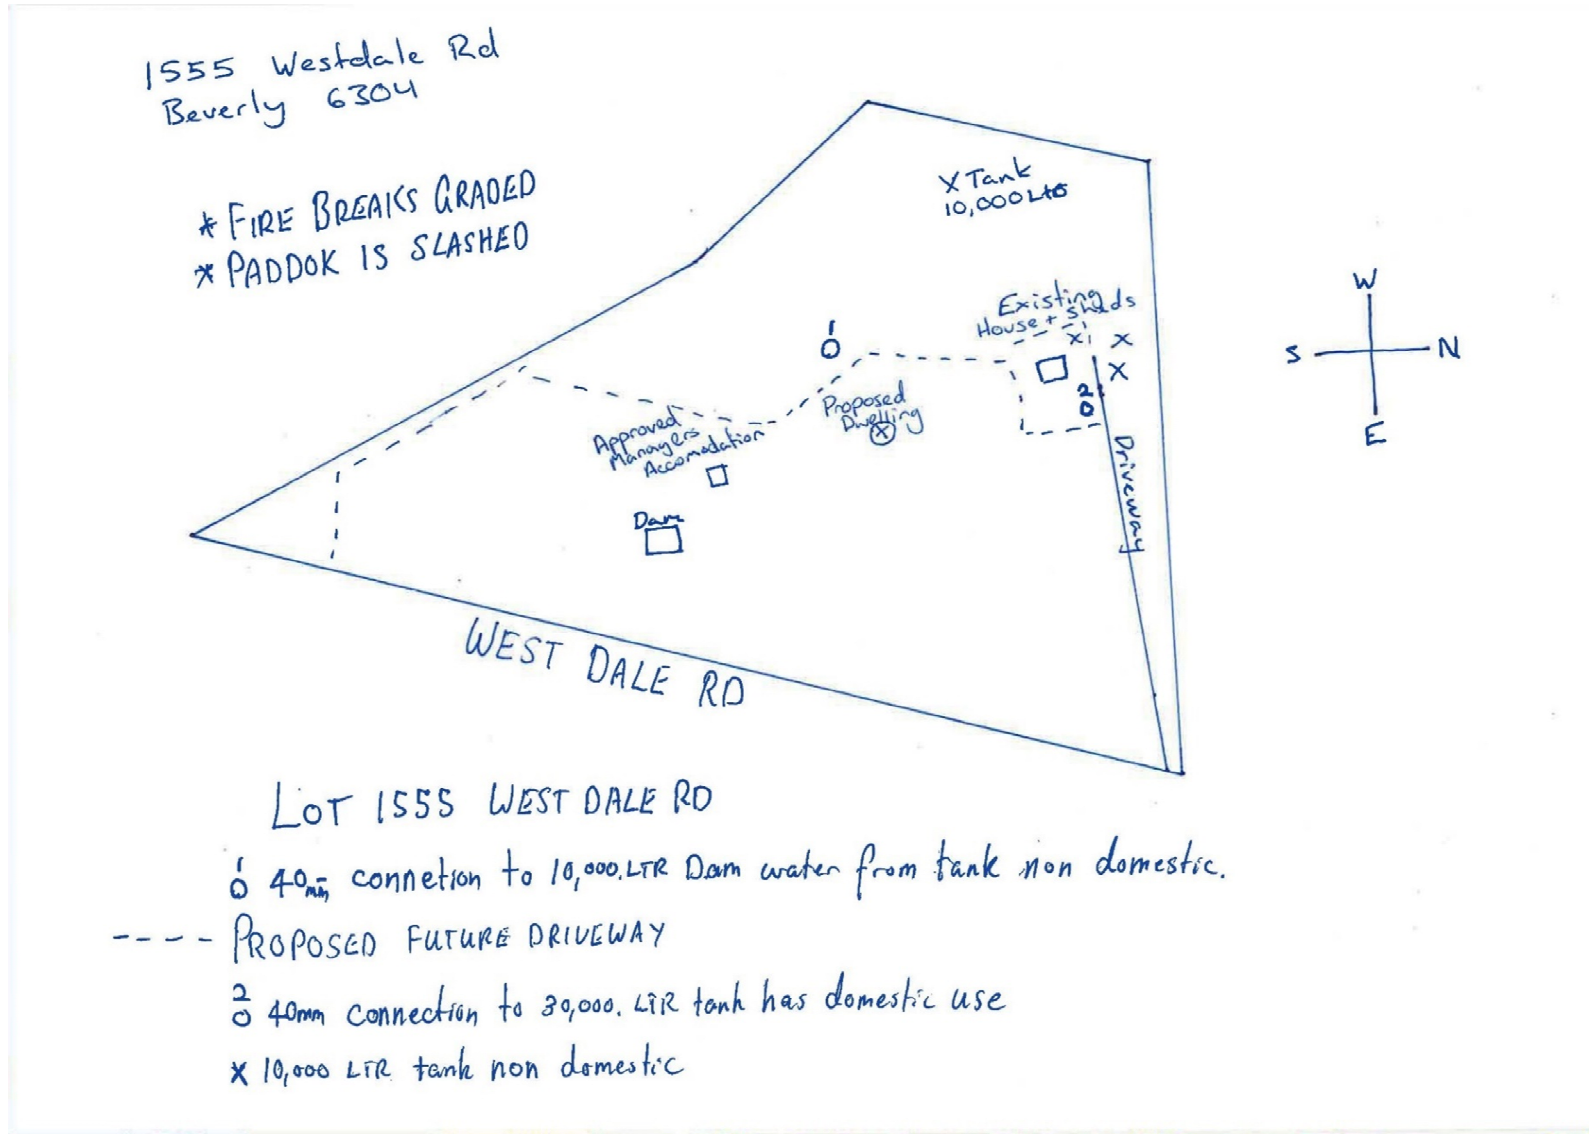 1555 Westdale Rd
Beverly 6304
* FIRE BREAKS GRADED
* PADDOK IS SLASHED
X Tank
10,000 Ltr
Existing
House + Sheds
X X
X
1
O
2
O
Proposed
Dwelling
X
Approved
Managers
Accomodation
Dam
Driveway
W
S N
E
WEST DALE RD
LOT 1555 WEST DALE RD
1
O 40mm connetion to 10,000.LTR Dam water from tank non domestic.
---- PROPOSED FUTURE DRIVEWAY
2
O 40mm connection to 30,000. LTR tank has domestic use
X 10,000 LTR tank non domestic